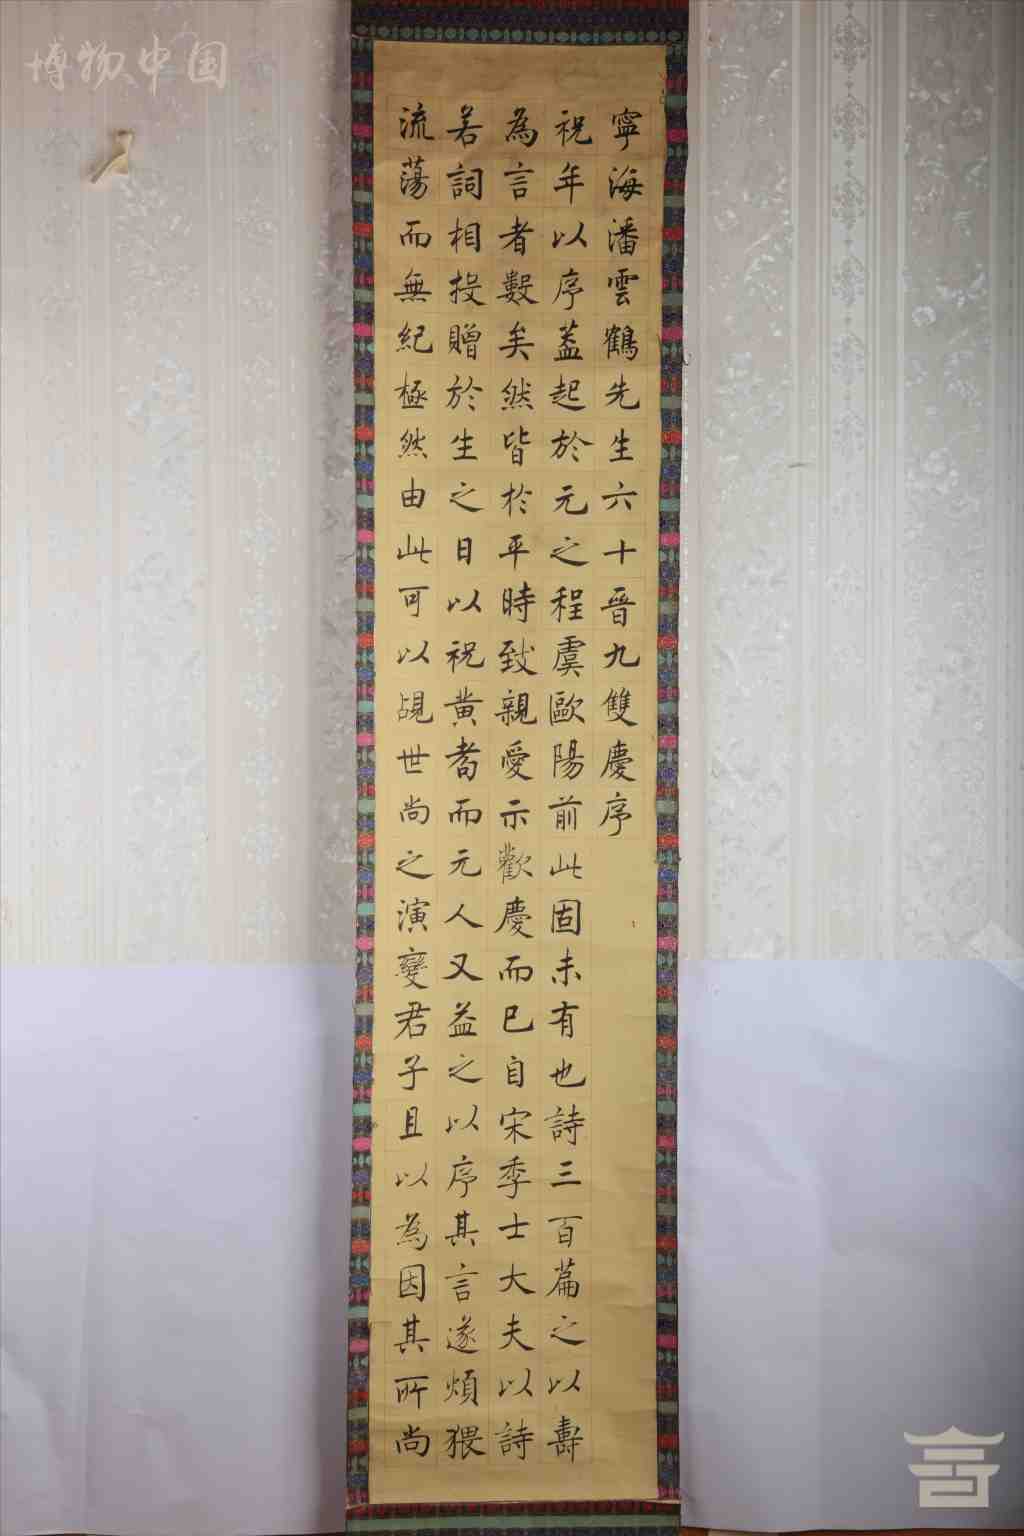 博物中国
寧海潘雲鶴先生六十晉九雙慶序
祝年以序蓋起於元之程虞歐陽前此固未有也詩三百篇之以壽
為言者數矣然皆於平時致親愛示歡慶而已自宋季士大夫以詩
若詞相投贈於生之日以祝黃耇而元人又益之以序其言遂煩猥
流蕩而無紀極然由此可以覘世尚之演變君子且以為因其所尚